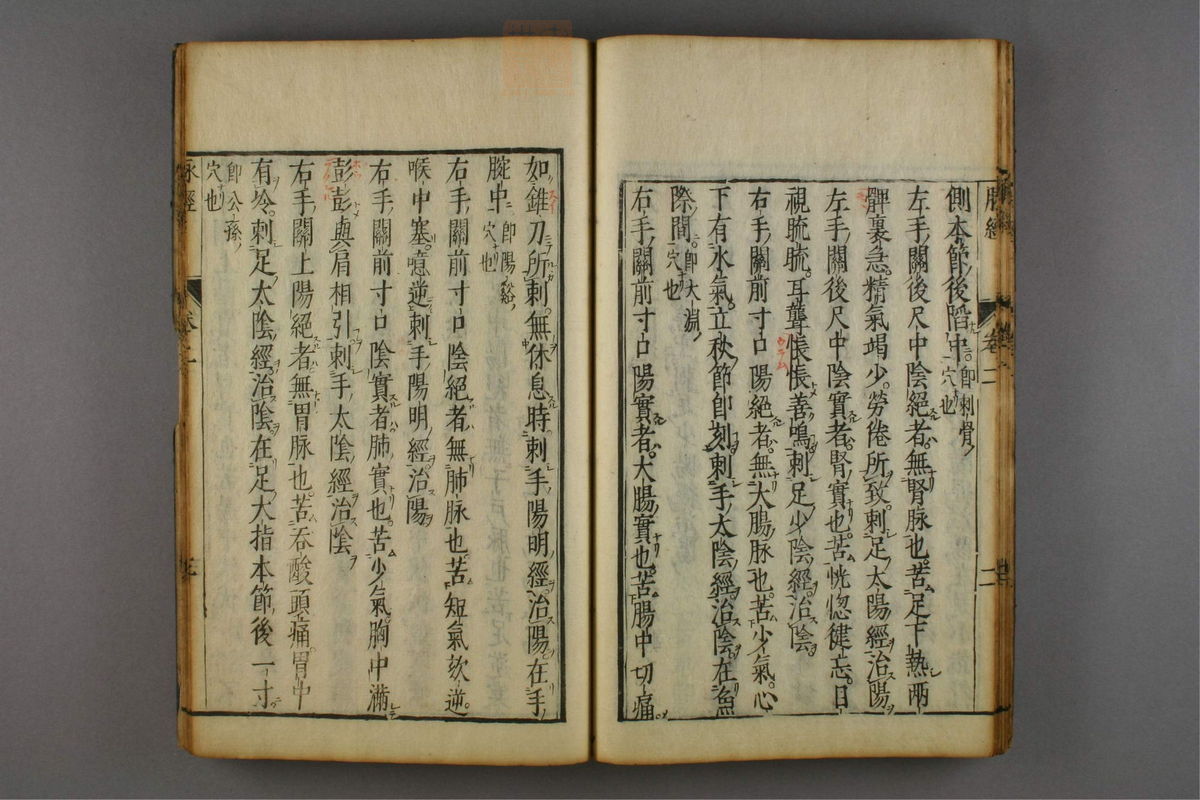 脉經 卷二 二
側本節後陷中即刺骨一穴也
左手關後尺中陰絕者無腎脉也苦足下熱兩
髀裏急精氣竭少勞倦所致刺足太陽經治陽
左手關後尺中陰實者腎實也苦恍惚健忘目
視䀮䀮耳聾悵悵善鳴刺足少陰經治陰
右手關前寸口陽絕者無大腸脉也苦少氣心
下有水氣立秋節即刻刺手太陰經治陰在魚
際間即大淵一穴也
右手關前寸口陽實者大腸實也苦腸中切痛
如錐刀所刺無休息時刺手陽明經治陽在手
腕中即陽谿穴也
右手關前寸口陰絕者無肺脉也苦短氣欬逆
喉中塞噫逆刺手陽明經治陽
右手關前寸口陰實者肺實也苦少氣胸中滿
彭彭與肩相引刺手太陰經治陰
右手關上陽絕者無胃脉也苦吞酸頭痛胃中
有冷刺足太陰經治陰在足大指本節後一寸
即公孫穴也
脉經 卷二